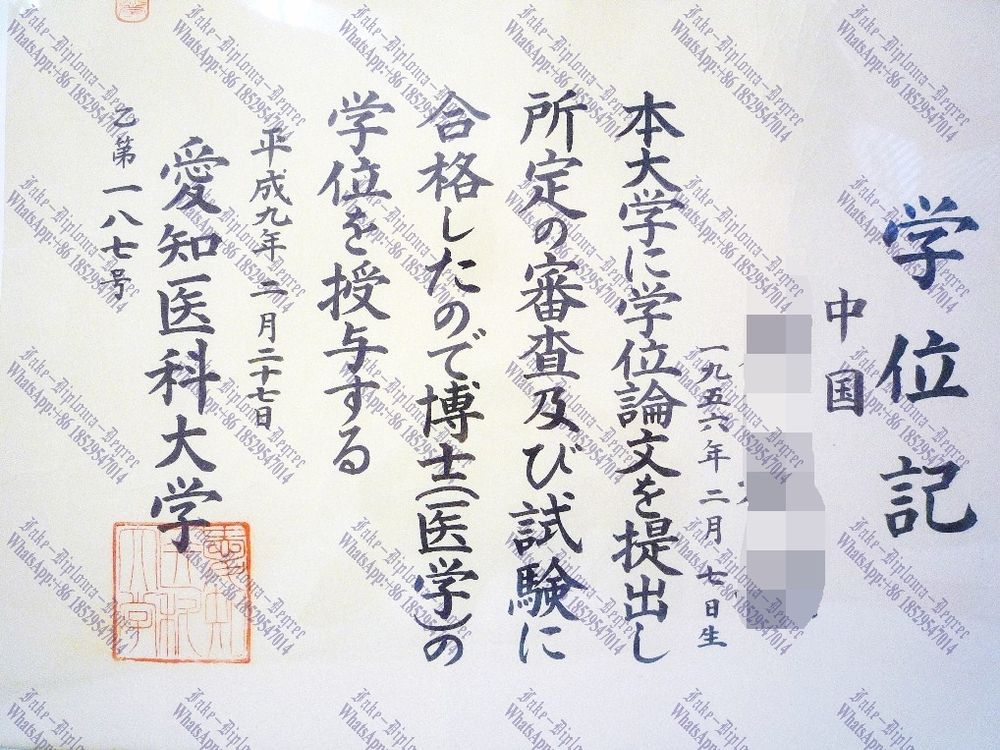 学位記
中国
一九五六年二月七日生
本大学に学位論文を提出し
所定の審査及び試験に
合格したので博士(医学)の
学位を授与する
平成九年二月二十七日
愛知医科大学
乙第一八七号
愛知医科大学
Jake-Diploma-Degree
WhatsApp:+86 18529547014